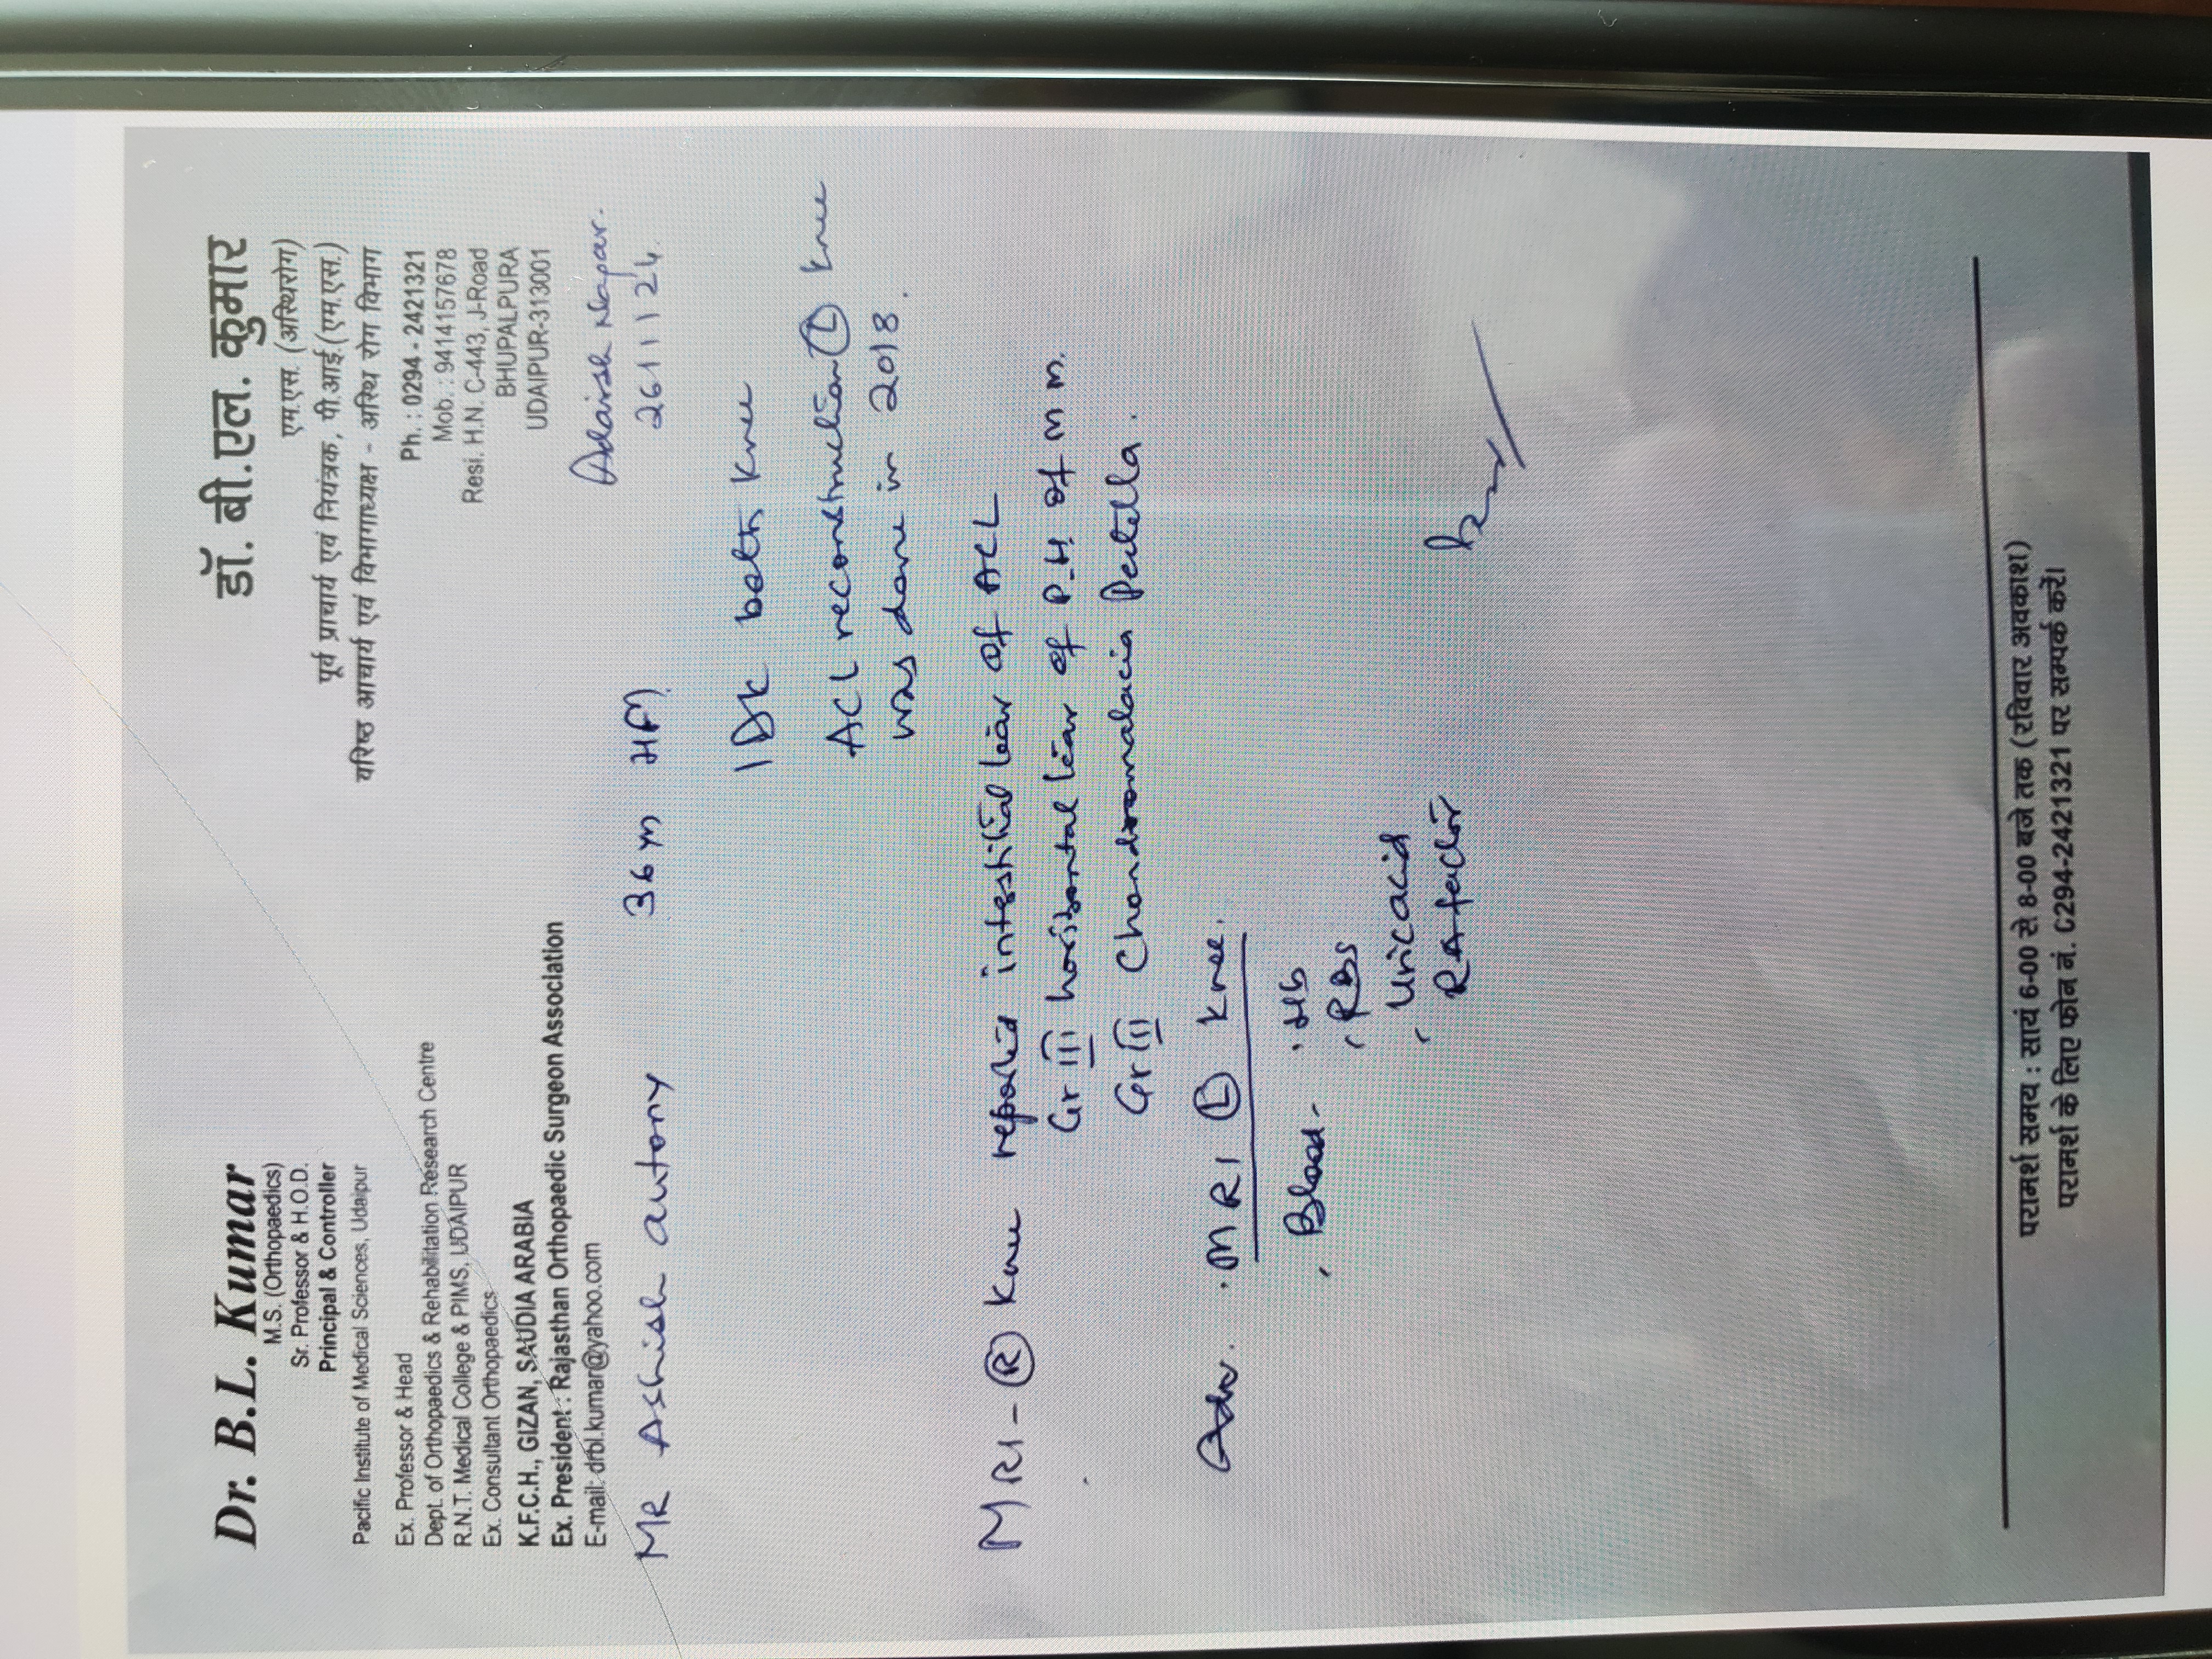 Dr. B.L. Kumar
M.S. (Orthopaedics)
Sr. Professor & H.O.D.
Principal & Controller
Pacific Institute of Medical Sciences, Udaipur
Ex. Professor & Head
Dept. of Orthopaedics & Rehabilitation Research Centre
R.N.T. Medical College & PIMS, UDAIPUR
Ex. Consultant Orthopaedics
K.F.C.H., GIZAN, SAUDIA ARABIA
Ex. President : Rajasthan Orthopaedic Surgeon Association
E-mail: drbl.kumar@yahoo.com
डॉ. बी.एल. कुमार
एम.एस. (अस्थिरोग)
पूर्व प्राचार्य एवं नियंत्रक, पी.आई.(एम.एस.)
वरिष्ठ आचार्य एवं विभागाध्यक्ष - अस्थि रोग विभाग
Ph. : 0294 - 2421321
Mob. : 9414157678
Resi. H.N. C-443, J-Road
BHUPALPURA
UDAIPUR-313001
Adarsh Nagar.
26/11/24.
MR Ashish autony 36 m
IDK both knee
ACL reconstruction (L) knee
was done in 2018.
MRI - (R) Knee reported intestitial tear of ACL
Gr III horizontal tear of P.H. of m m.
Gr III Chondromalacia Patella.
Adv. . MRI (L) knee.
, Blood - . Hb
, RBS
, Uric acid
RA factor
परामर्श समय : सायं 6-00 से 8-00 बजे तक (रविवार अवकाश)
परामर्श के लिए फोन नं. C294-2421321 पर सम्पर्क करें।